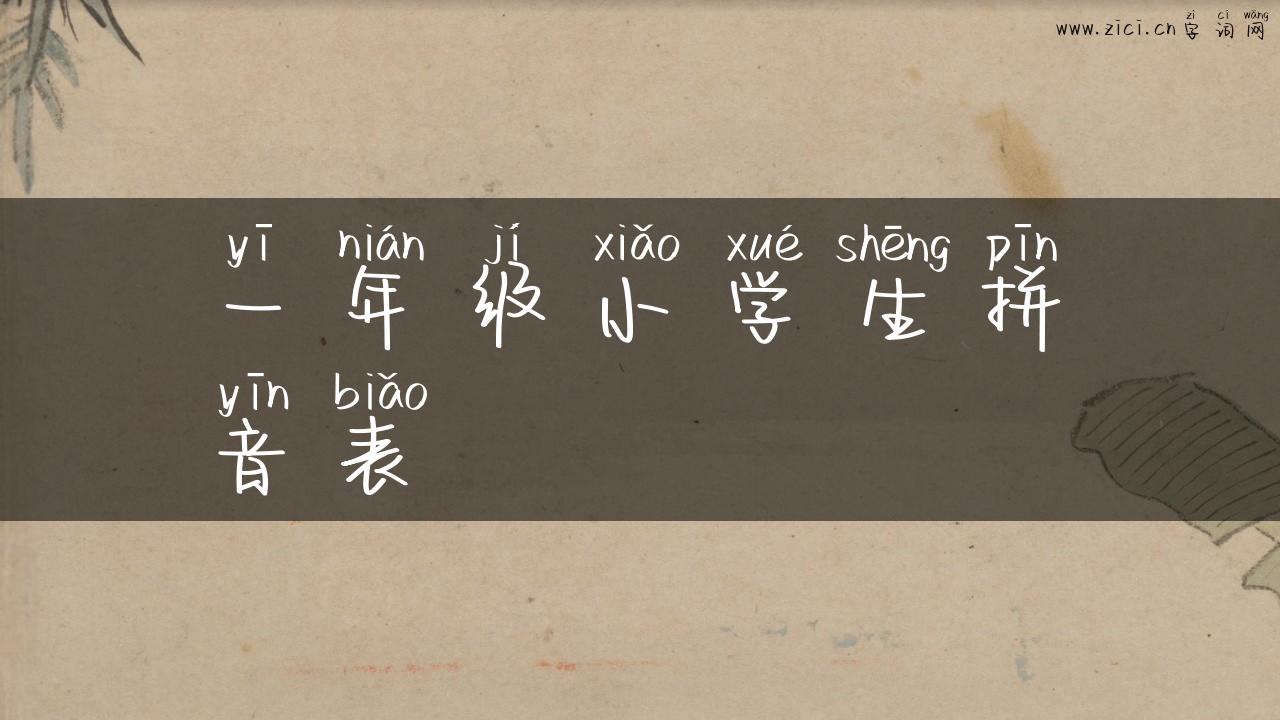 zì cí wǎng
www.zici.cn 字 词 网
yī nián jí xiǎo xué shēng pīn
一 年 级 小 学 生 拼
yīn biǎo
音 表